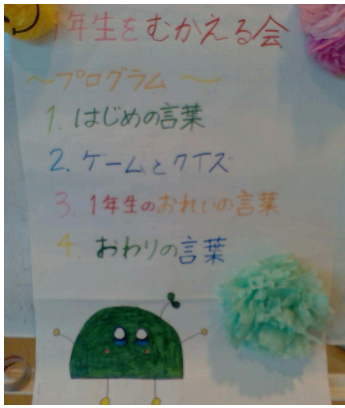 1年生をむかえる会
～プログラム～
1. はじめの言葉
2. ゲームとクイズ
3. 1年生のおれいの言葉
4. おわりの言葉